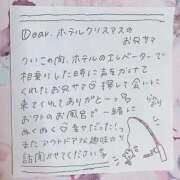 Dear. ホテルクリスマスの
お兄サマ
ついこの間、ホテルのエレベーターで
相乗りした時に声をかけて
くれたお兄サマ♡ 探して会いに
来てくれてありがとーっ
お外のお風呂で一緒に
ぬくぬく♡ 幸せだったぁっ
またアウトドアな趣味のお
話聞かせてくださいっ